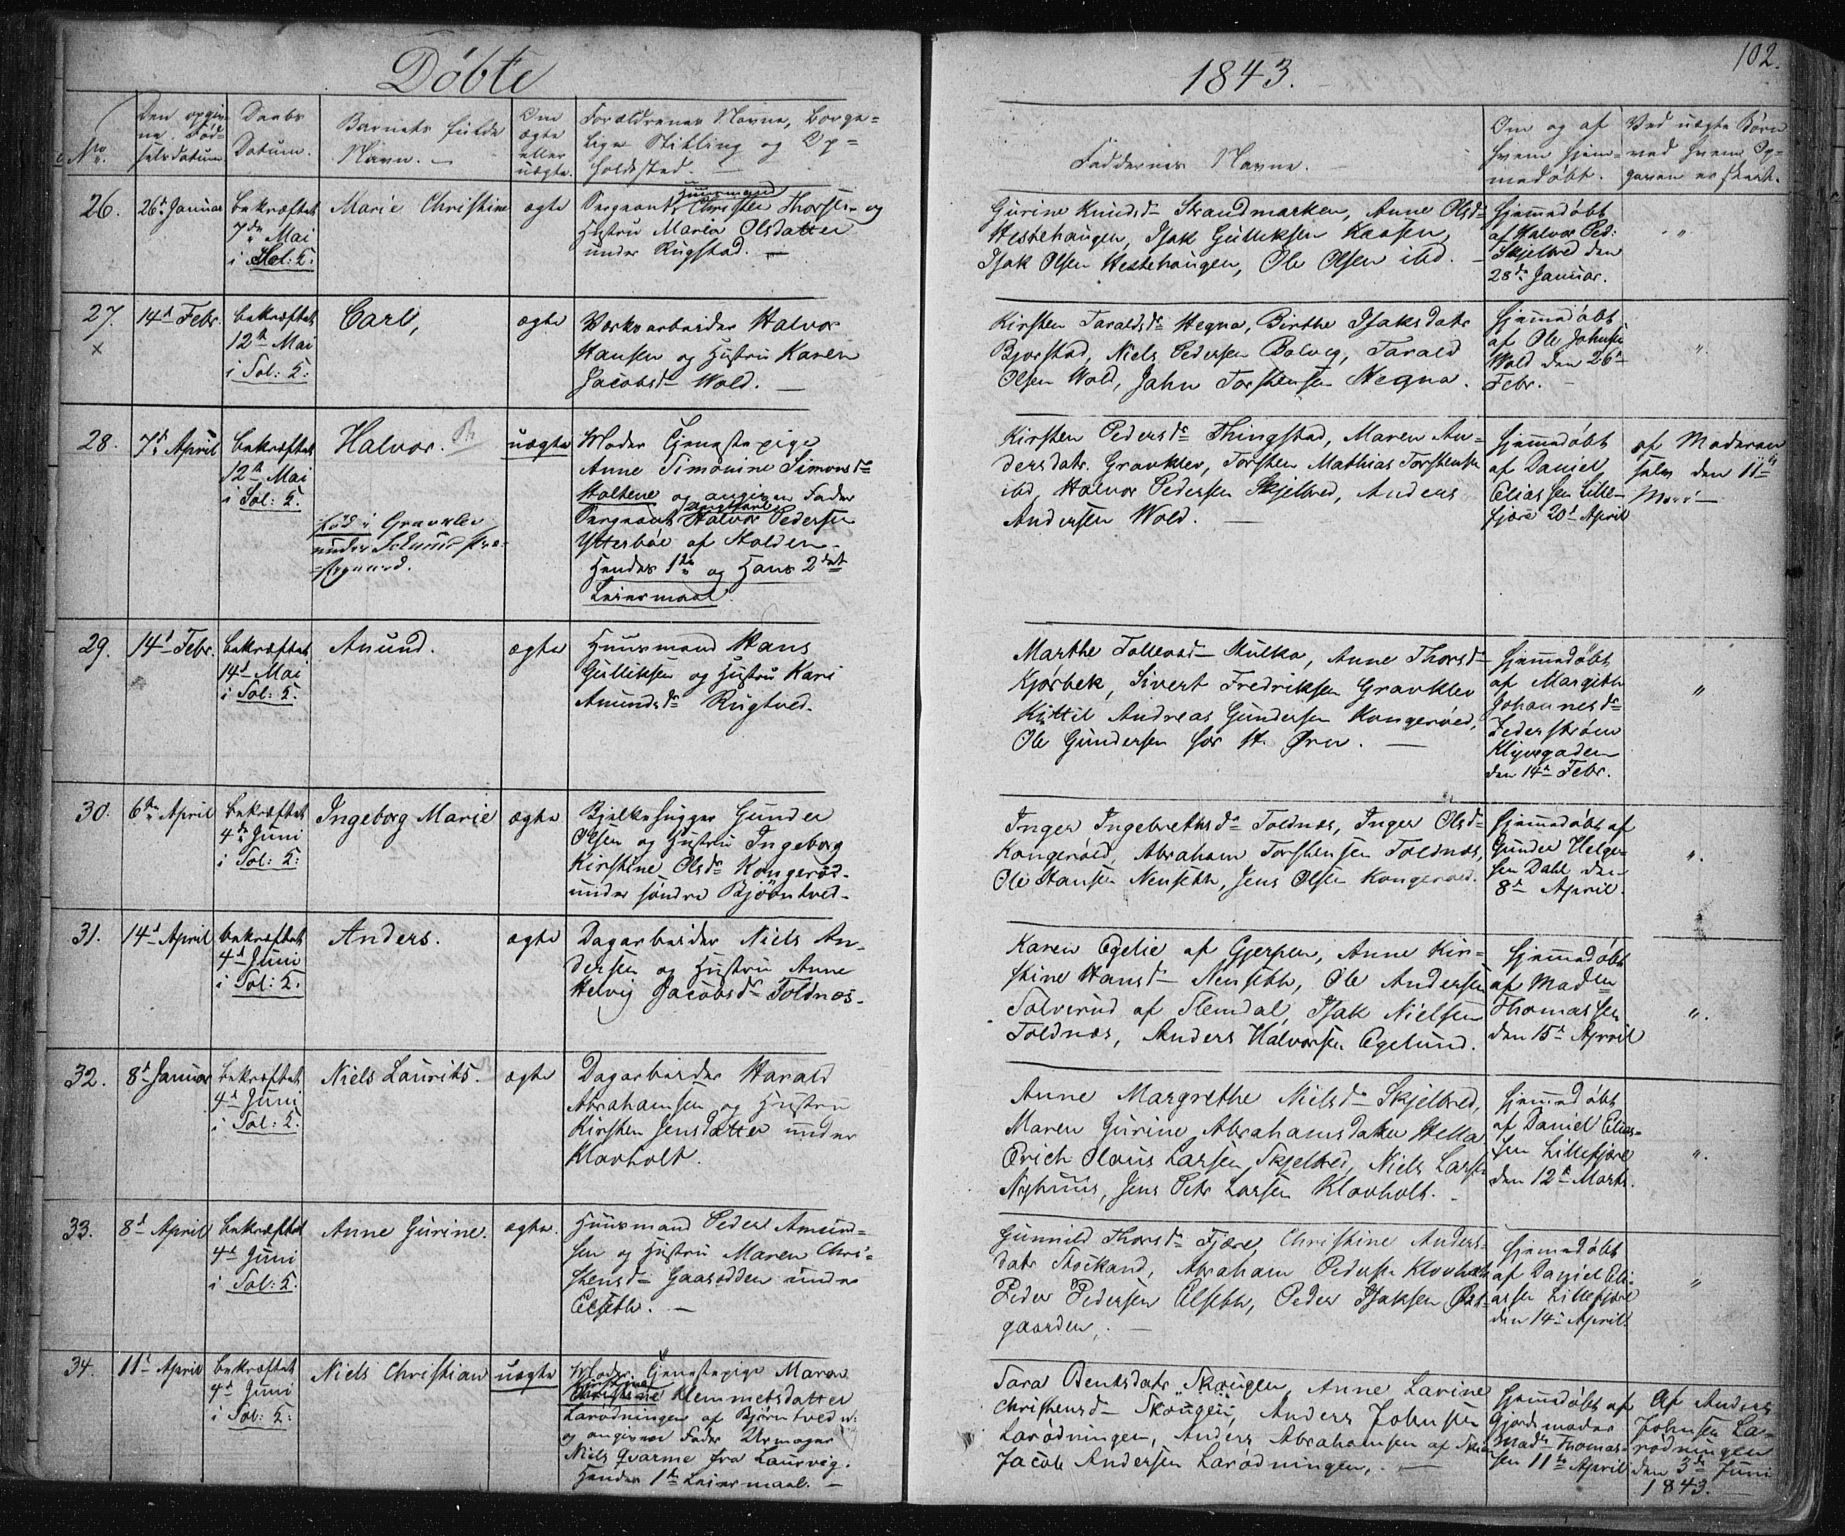 Døbte
1843.
102.
No
Den opgiv-
ne Fød-
selsdatum
Daabs
Datum.
Barnets fulde
Navn.
Om
ægte
eller
uægte.
Forældrenes Navne, Borger-
lige Stilling og Op-
holdssted.
Faddernes Navne.
Om og af
hvem hjem-
medøbt.
Ved uægte Børn
ved hvem Op-
gaven er skeet.
26.
26d Januar
bekræftet
7de Mai
i Sol: K:
Marie Christine
ægte
Huusmand
Sergeant Christen Thorsen og
Hustru Maren Olsdatter
under Rugstad.
Gurine Knudsdr Strandmarken, Anne Olsdr
Hestehaugen, Isak Gulliksen Kaasen,
Isak Olsen Hestehaugen, Ole Olsen ibd.
Hjemmedøbt
af Halvor Ped:
Skjelbred den
28de Januar.
"
27.
x
14d Febr.
bekræftet
12te Mai
i Sol: K:
Carl,
ægte
Værksarbeider Halvor
Hansen og Hustru Karen
Jacobsdr Wold.
Kirsten Taraldsdr Hegna, Birthe Isaksdatr
Bjorstad, Niels Pedersen Bolvig, Tarald
Olsen Wold, John Torstensen Hegna.
Hjemmedøbt
af Ole Johnsen
Wold den 26d
Febr.
"
28.
7d April
bekræftet
12te Mai
i Sol: K:
Halvor.
født i Gravklev
under Solum Præ-
stegaard.
uægte
Moder Tjenestepige
Anne Simonine Simonsdr
Holtene og angiven Fader
Sergeant Halvor Pedersen
Ytterbøe af Holden.
Hendes 1ste og Hans 2det
Leiermaal.
Kirsten Pedersdr Thingstad, Maren An-
dersdatr. Gravklev, Torsten Mathias Torstensen
ibd, Halvor Pedersen Skjelbred, Andreas
Andersen Wold.
Hjemmedøbt
af Daniel
Eliassen Lille-
fjære 20d April
af Moderen
selv den 11te
Mai
29.
14d Febr.
bekræftet
14d Mai
i Sol: K.
Amund.
ægte
Huusmand Hans
Gulliksen og Hustru Kari
Amundsdr Rugtved.
Marthe Tollevsdr Mulka, Anne Thorsdr
Kjørbek, Sivert Fredriksen Gravklev
Kittil Andreas Gundersen Kongerød,
Ole Gundersen hos H. Ørn.
Hjemmedøbt
af Margithe
Johannesdr
Zederstrøm
Klyvegaden
den 14d Febr.
"
30.
6te April
bekræftet
4de Juni
i Sol: K:
Ingeborg Marie
ægte
Bjelkehugger Gunder
Olsen og Hustru Ingeborg
Kirstine Olsdr Kongerød
under søndre Bjørntved.
Inger Ingebrethsdr Toldnæs, Inger Olsdr
Kongerød, Abraham Torstensen Toldnæs,
Ole Hansen Nenseth, Jens Olsen Kongerød.
Hjemmedøbt af
Gunder Helge-
sen Dahl den
8d April.
"
31.
14d April
bekræftet
4d Juni
i Sol: K.
Anders.
ægte
Dagarbeider Niels An-
dersen og Hustru Anne
Helvig Jacobsdr Toldnæs.
Karen Egelie af Gjerpen, Anne Kir-
stine Hansdr Nenseth, Ole Andersen
Solverud af Slemdal, Isak Nielsen
Toldnæs, Anders Halvorsen Egelund.
Hjemmedøbt
af Madm
Thomassen
den 15d April
"
32.
8d Januar
bekræftet
4d Juni
i Sol: K.
Niels Laurits.
ægte
Dagarbeider Harald
Abrahamsen og Hustru
Kirsten Jensdatter under
Klovholt.
Anne Margrethe Nielsdr Skjelbred,
Maren Gurine Abrahamsdatter Hella
Erich Olaus Larsen Skjelbred, Niels Larsen
Nyhuus, Jens Petr Larsen Klovholt.
Hjemmedøbt
af Daniel Elias-
sen Lillefjære
den 12d Marts.
"
33.
8d April
bekræftet
4d Juni
i Sol: K.
Anne Gurine.
ægte.
Huusmand Peder Amund-
sen og Hustru Maren Chri-
stensdr Gaasodden under
Elseth.
Gunnild Thorsdr Fjære, Christine Anders-
datr Stokand, Abraham Pedersen Klovholt
Peder Pedersen Elseth, Peder Isaksen Øst-
gaarden,
Hjemmedøbt
af Daniel Eli-
assen Lillefjære
den 14d April.
"
34.
11d April
bekræftet
4d Juni
i Sol: K:
Niels Christian
uægte
Moder Tjenestepige Maren
Kirstine
Christine Klemmetsdatter
Larødningen af Bjørntvedn:
og angiven Fader Urmager
Niels Qvarme fra Laurvig.
Hendes 1ste Leiermaal.
Sara Bentsdatr Skougen, Anne Larine
Christensdr Skougen, Anders Johnsen
Larødningen, Anders Abrahamsen af Skien
Jacob Andersen Larødningen,
Hjemmedøbt af
Gjordemoder
Madm Thomas-
sen 11te April
Af Anders
Johnsen La-
rødningen
den 3de Juni
1843.